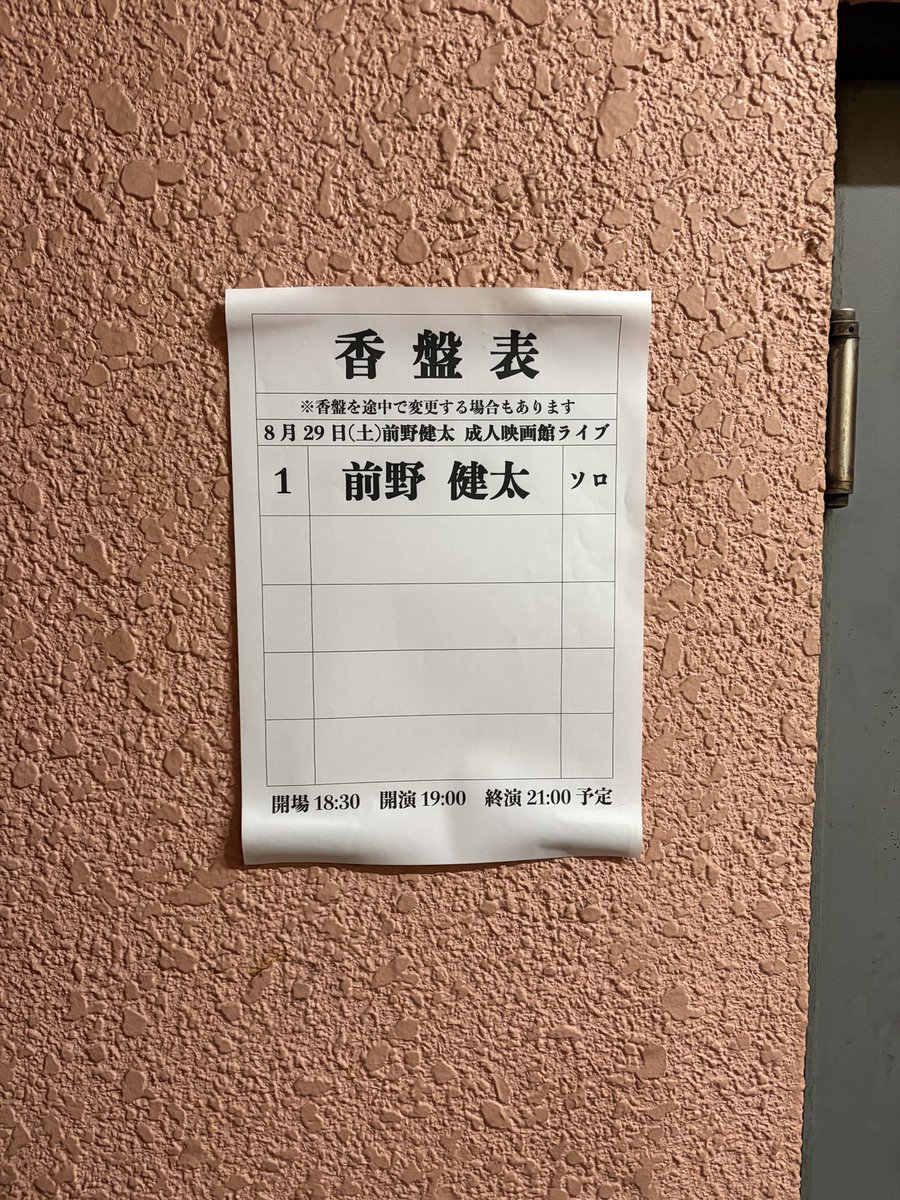 香盤表
※香盤を途中で変更する場合もあります
8月29日(土)前野健太 成人映画館ライブ
1 前野 健太 ソロ
開場 18:30 開演 19:00 終演 21:00 予定